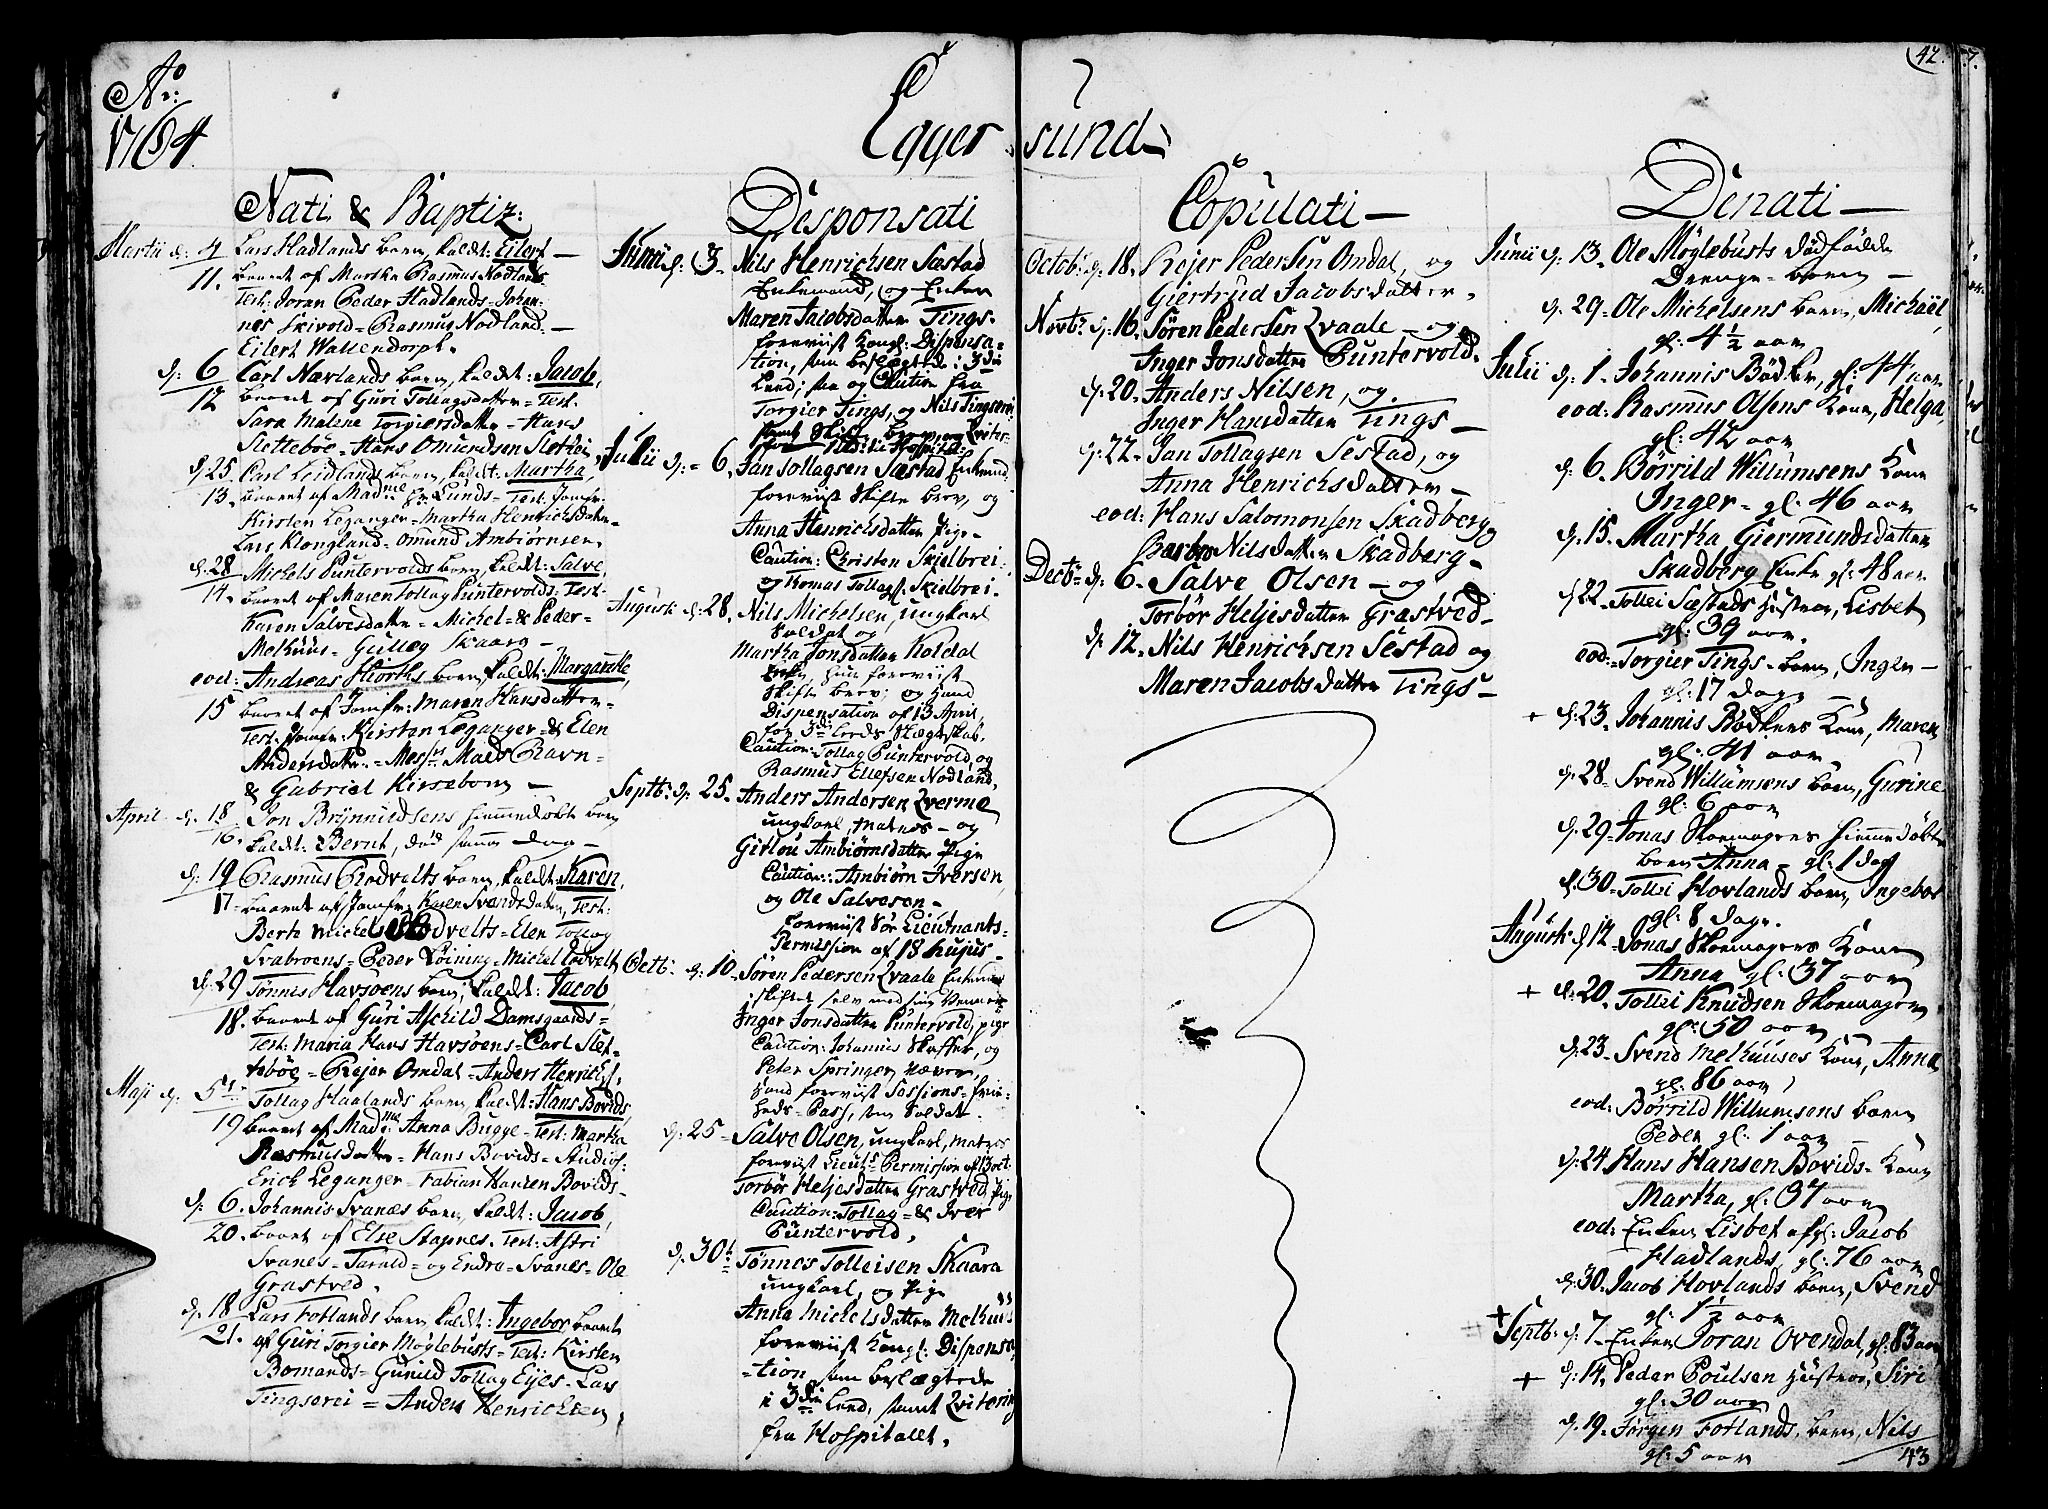 Ao:
1764.
Egger-sund-
42.
Nati & Baptiz:
Martii d. 4 Lars Hadlands barn, kaldt: Eilert -
11. baaret af Martha Rasmus Nodlands
Test: Joran Peder Hadlands = Johan-
nes Skivold = Rasmus Nodland. -
Eilert Wallendorph.
d: 6 Carl Nævlands barn, kaldt: Jacob,
12 baaret af Guri Tollagsdatter = Test:
Sara Malene Torgiersdatter = Hans
Slettebøe = Hans Omundsen Slettei
d. 25. Carl Leidlands barn, kaldt: Martha,
13. baaret af Madme Lunds = Test: Jomfr:
Kirsten Leganger = Martha Henrichsdatter =
Lars Klongland = Omund Ambiørnsen.
d. 28 Michels Puntervolds barn, kaldt: Salve,
14. baaret af Maren Tollag Puntervolds: Test:
Karen Salvesdatter = Michel = & Peder =
Melhuus = Gulleg Skaara -
eod: Andreas Hiorths barn, kaldt: Margarethe,
15 baaret af Jomfr: Maren Hansdatter =
Test: Jomfr: Kirsten Leganger = & Elen
Andersdatter = Messrs Mads Ravn =
& Gabriel Kirsebom -
April d. 18 Jon Brynnildsens hiemmedøbt barn
16. kaldt: Bernt, død samme dag -
d. 19 Rasmus Rodvelts barn, kaldt: Karen,
17 - baaret af Jomfr: Karen Svendsdatter, Test:
Berte Michel Rodvelts = Elen Tollag
Svabroens = Peder Løining = Michel Rodvelt
d. 29 Tønnes Havsøens barn, kaldt: Jacob,
18. baaret af Guri Aschild Damsgaards =
Test: Maria Hans Havsøens = Carl Slet-
tebøe = Rejer Omdal = Anders Henrichs.
Maji d. 5te Tollag Haalands barn, kaldt: Hans Bovids,
19 baaret af Madme Anna Bugge = Test: Martha
Rasmusdatter = Hans Bovids = Studios:
Erich Leganger = Fabian Hansen Bovids -
d. 6. Johannis Svanæs barn, kaldt: Jacob,
20. baaret af Else Stapnes. Test: Astri
Svanes = Tarald = og Endre = Svanes = Ole
Grastved.
d. 18 Lars Fotlands barn, kaldt: Ingebor baaret
21. af Guri Torgier Møglebusts = Test: Kirsten
Bomands = Gunild Tollag Eijes = Lars
Tingserei = Anders Henrichsen.
Desponsati
Junii d: 3. Nils Henrichsen Sæstad
Enkemand, og Enken
Maren Jacobsdatter Tings.
foreviist Kongl: Dispensa-
tion, som beslægtede i 3die
Leed; saa og Caution fra
Torgier Tings, og Nils Tingserei
samt Skifte brev, og Qviter-
Julii d: = 6. Jan Tollagsen Sæstad Enkemd
foreviist Skifte brev, og
Anna Henrichsdatter Pige -
Caution: Christen Skielbrei.
og Thomas Tollagss. Skielbrei.
Augusti d. 28. Nils Michelsen, ungkarl
Soldat og
Martha Jonsdatter Koldal
Enke, hun foreviist
Skifte brev; og hand
Dispensation af 13 April,
for 3die Leeds Slægtskab.
Caution: Tollag Puntervold, og
Rasmus Ellefsen Nodland,
Septb: d. 25. Anders Andersen Qverme
ungkarl, Matros - og
Girtru Ambiørnsdatter Pige
Caution: Ambiørn Iversen,
og Ole Salvesen -
foreviist Søe Lieutnants-
Permission af 18 hujus -
Octb: d. 10. Søren Pedersen Qvaale Enkemand
skiftet selv med sine Venner
Inger Jonsdatter Puntervold, pige
Caution: Johannis Skaffer, og
Peter Springer Næver,
hand foreviist Sessions = frie-
heds = Pass, som Soldat -
d. 25 - Salve Olsen, ungkarl, Matros
foreviist Lieuts Permission af 13 oct:
Torbør Heljesdatter Grastved, Pige
Caution: Tollag = & Iver
Puntervold.
d. 30te Tønnes Tolleisen Skaara
ungkarl, og Pige
Anna Michelsdatter Melhuus
foreviist Kongl: Dispensa-
=tion, som beslægtede
i 3die Leed, samt Qvitering
fra Hospitalet.
Copulati -
Octob: d. 18. Rejer Pedersen Omdal, og
Giertrud Jacobsdatter.
Novbr: d. 16. Søren Pedersen Qvaale - og
Inger Jonsdatter Puntervold.
d. 20. Anders Nilsen, og
Inger Hansdatter Tings -
d. 22. Jan Tollagsen Sestad, og
Anna Henrichsdatter -
eod: Hans Salomonsen Skadberg
Barbro Nilsdatter Skadberg -
Decbr d. 6. Salve Olsen - og
Torbør Heljesdatter Grastved -
d. 12. Nils Henrichsen Sestad og
Maren Jacobsdatter Tings -
Denati -
Junii d. 13. Ole Møglebusts dødfødde
Drenge = barn -
d. 29 = Ole Michelsens barn, Michael,
gl: 4 1/2 aar
Julii d: 1. Johannis Bødker, gl: 44 aar
eod: Rasmus Olsens Kone, Helga,
gl: 42 aar
d. 6. Børrild Willumsens Kone
Inger = gl: 46 aar
d. 15. Martha Giermundsdatter
Skadberg Enke gl: 48 aar
d. 22. Tollei Sæstads Hustroe, Lisbet
gl: 39 aar.
eod: Torgier Tings = barn, Inger -
gl: 17 dage -
+ d. 23. Johannis Bødkers Kone, Maren
gl: 41 aar.
d. 28. Svend Willumsens barn, Gurine
gl: 6 aar
d. 29 - Jonas Skoemagers hiemmedøbte
barn Anna - gl: 1 dag
d. 30. Tollei Hovlands barn, Ingebor
gl: 8 dage.
Augusti d. 12 - Jonas Skoemagers Kone
Anna gl: 37 aar
+ d. 20. Tollei Knudsen Skoemager.
gl: 50 aar
d. 23. Svend Melhuuses Kone, Anna
gl: 86 aar
eod: Børrild Willumsens barn
Peder gl: 1 aar
d. 24 Hans Hansen Bovids = Kone
Martha, gl: 37 aar
eod: Enken Lisbet afgl: Jacob
Hadlands, gl: 76 aar
d. 30. Jacob Hovlands barn, Svend
gl: 1 1/2 aar
+ Septb: d. 7 - Enken Joran Ovendal, gl: 83 aar
+ d. 14. Peder Poulsen Hustroe, Siri
gl: 30 aar
d. 19. Jørgen Fotlands barn, Nils
gl: 5 aar
43